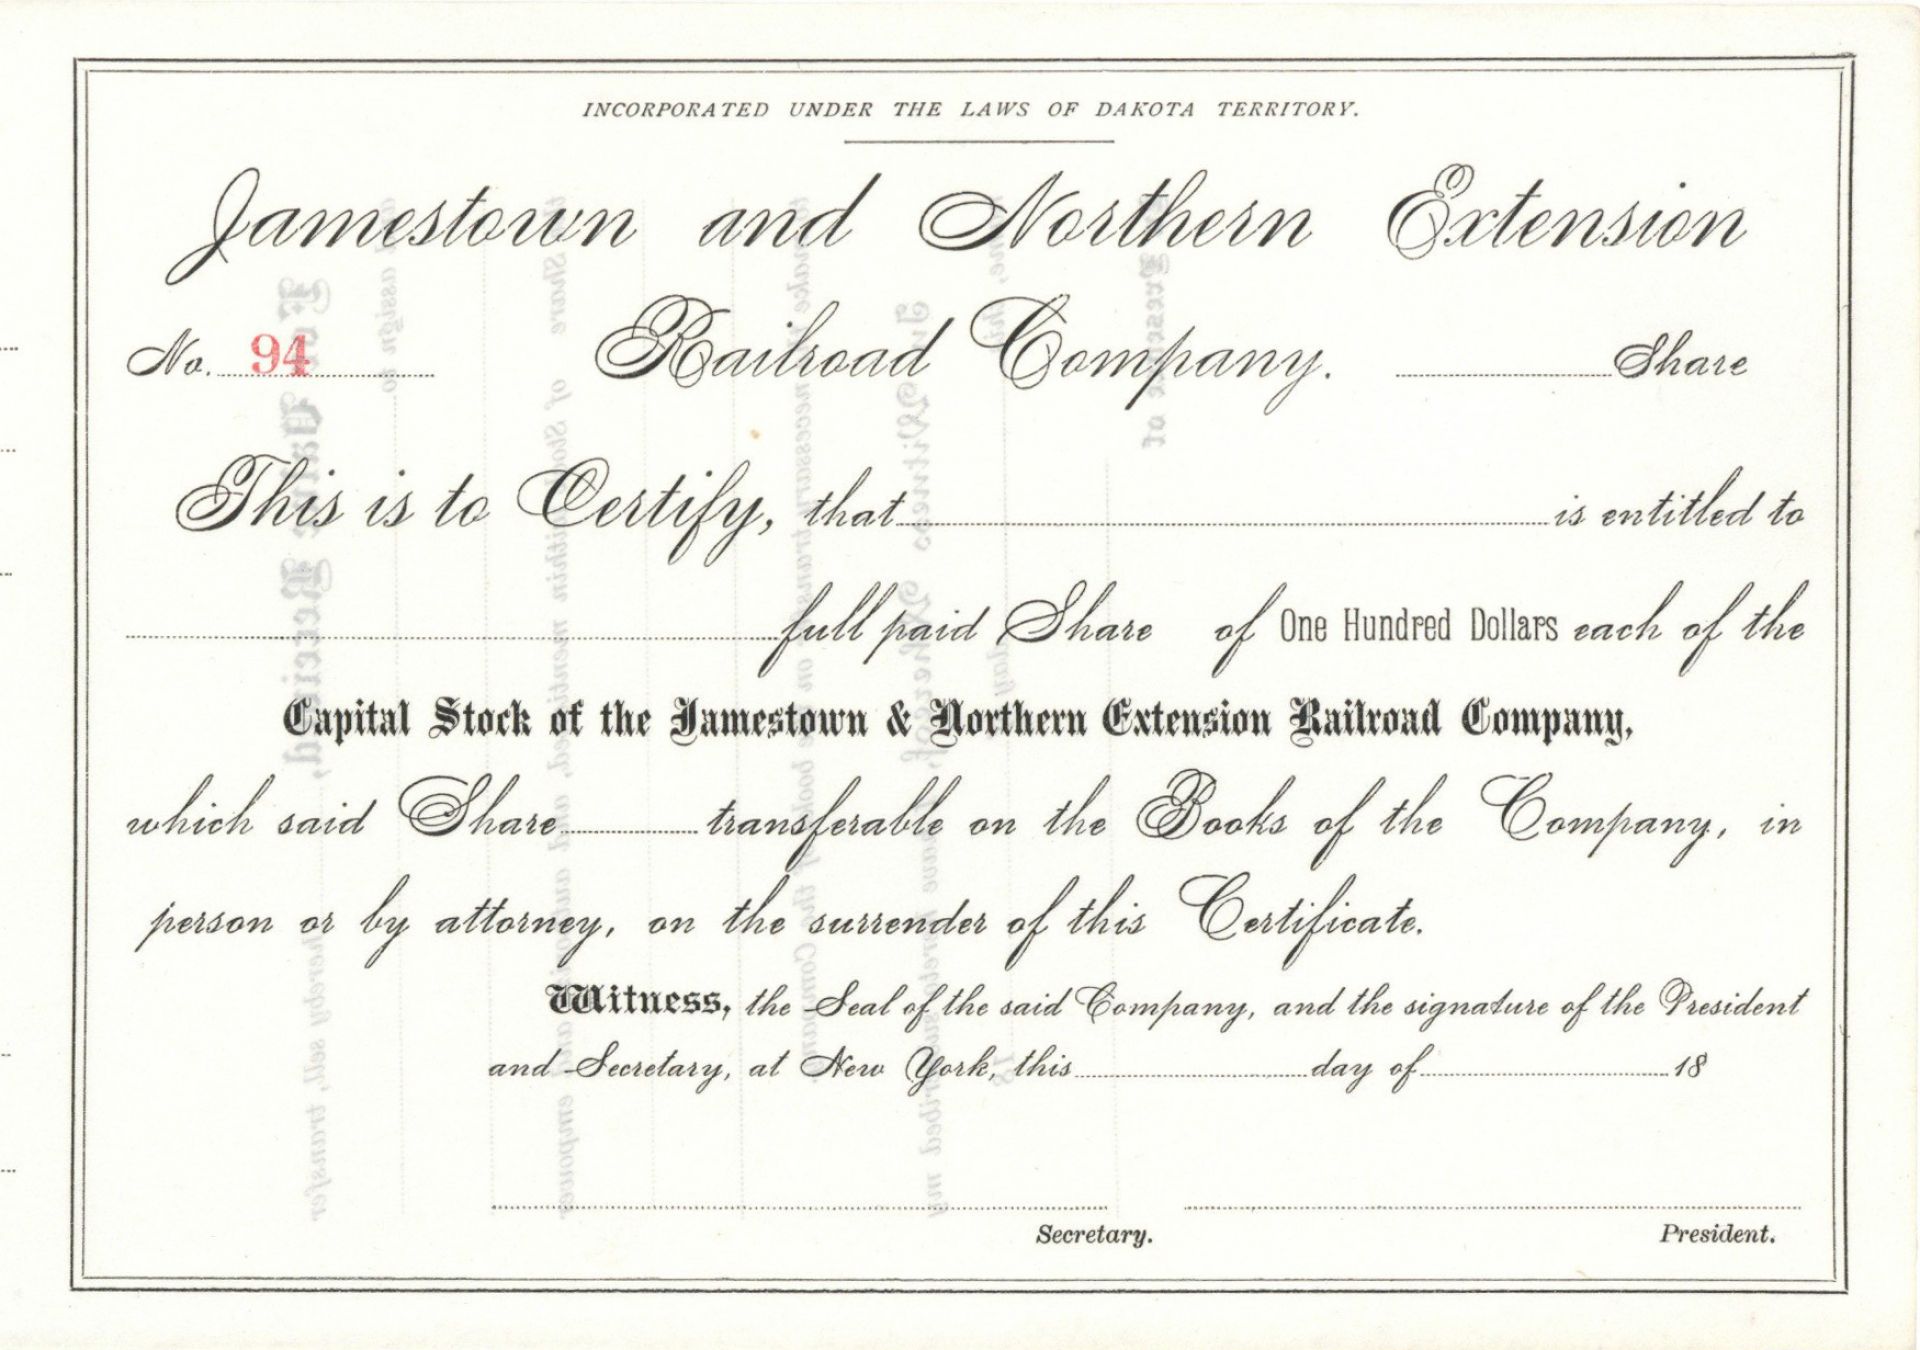 INCORPORATED UNDER THE LAWS OF DAKOTA TERRITORY.
Jamestown and Northern Extension
No. 94 Railroad Company. Share
This is to Certify, that is entitled to
full paid Share of One Hundred Dollars each of the
Capital Stock of the Jamestown & Northern Extension Railroad Company,
which said Share transferable on the Books of the Company, in
person or by attorney, on the surrender of this Certificate.
Witness, the Seal of the said Company, and the signature of the President
and Secretary, at New York, this day of 18
Secretary. President.